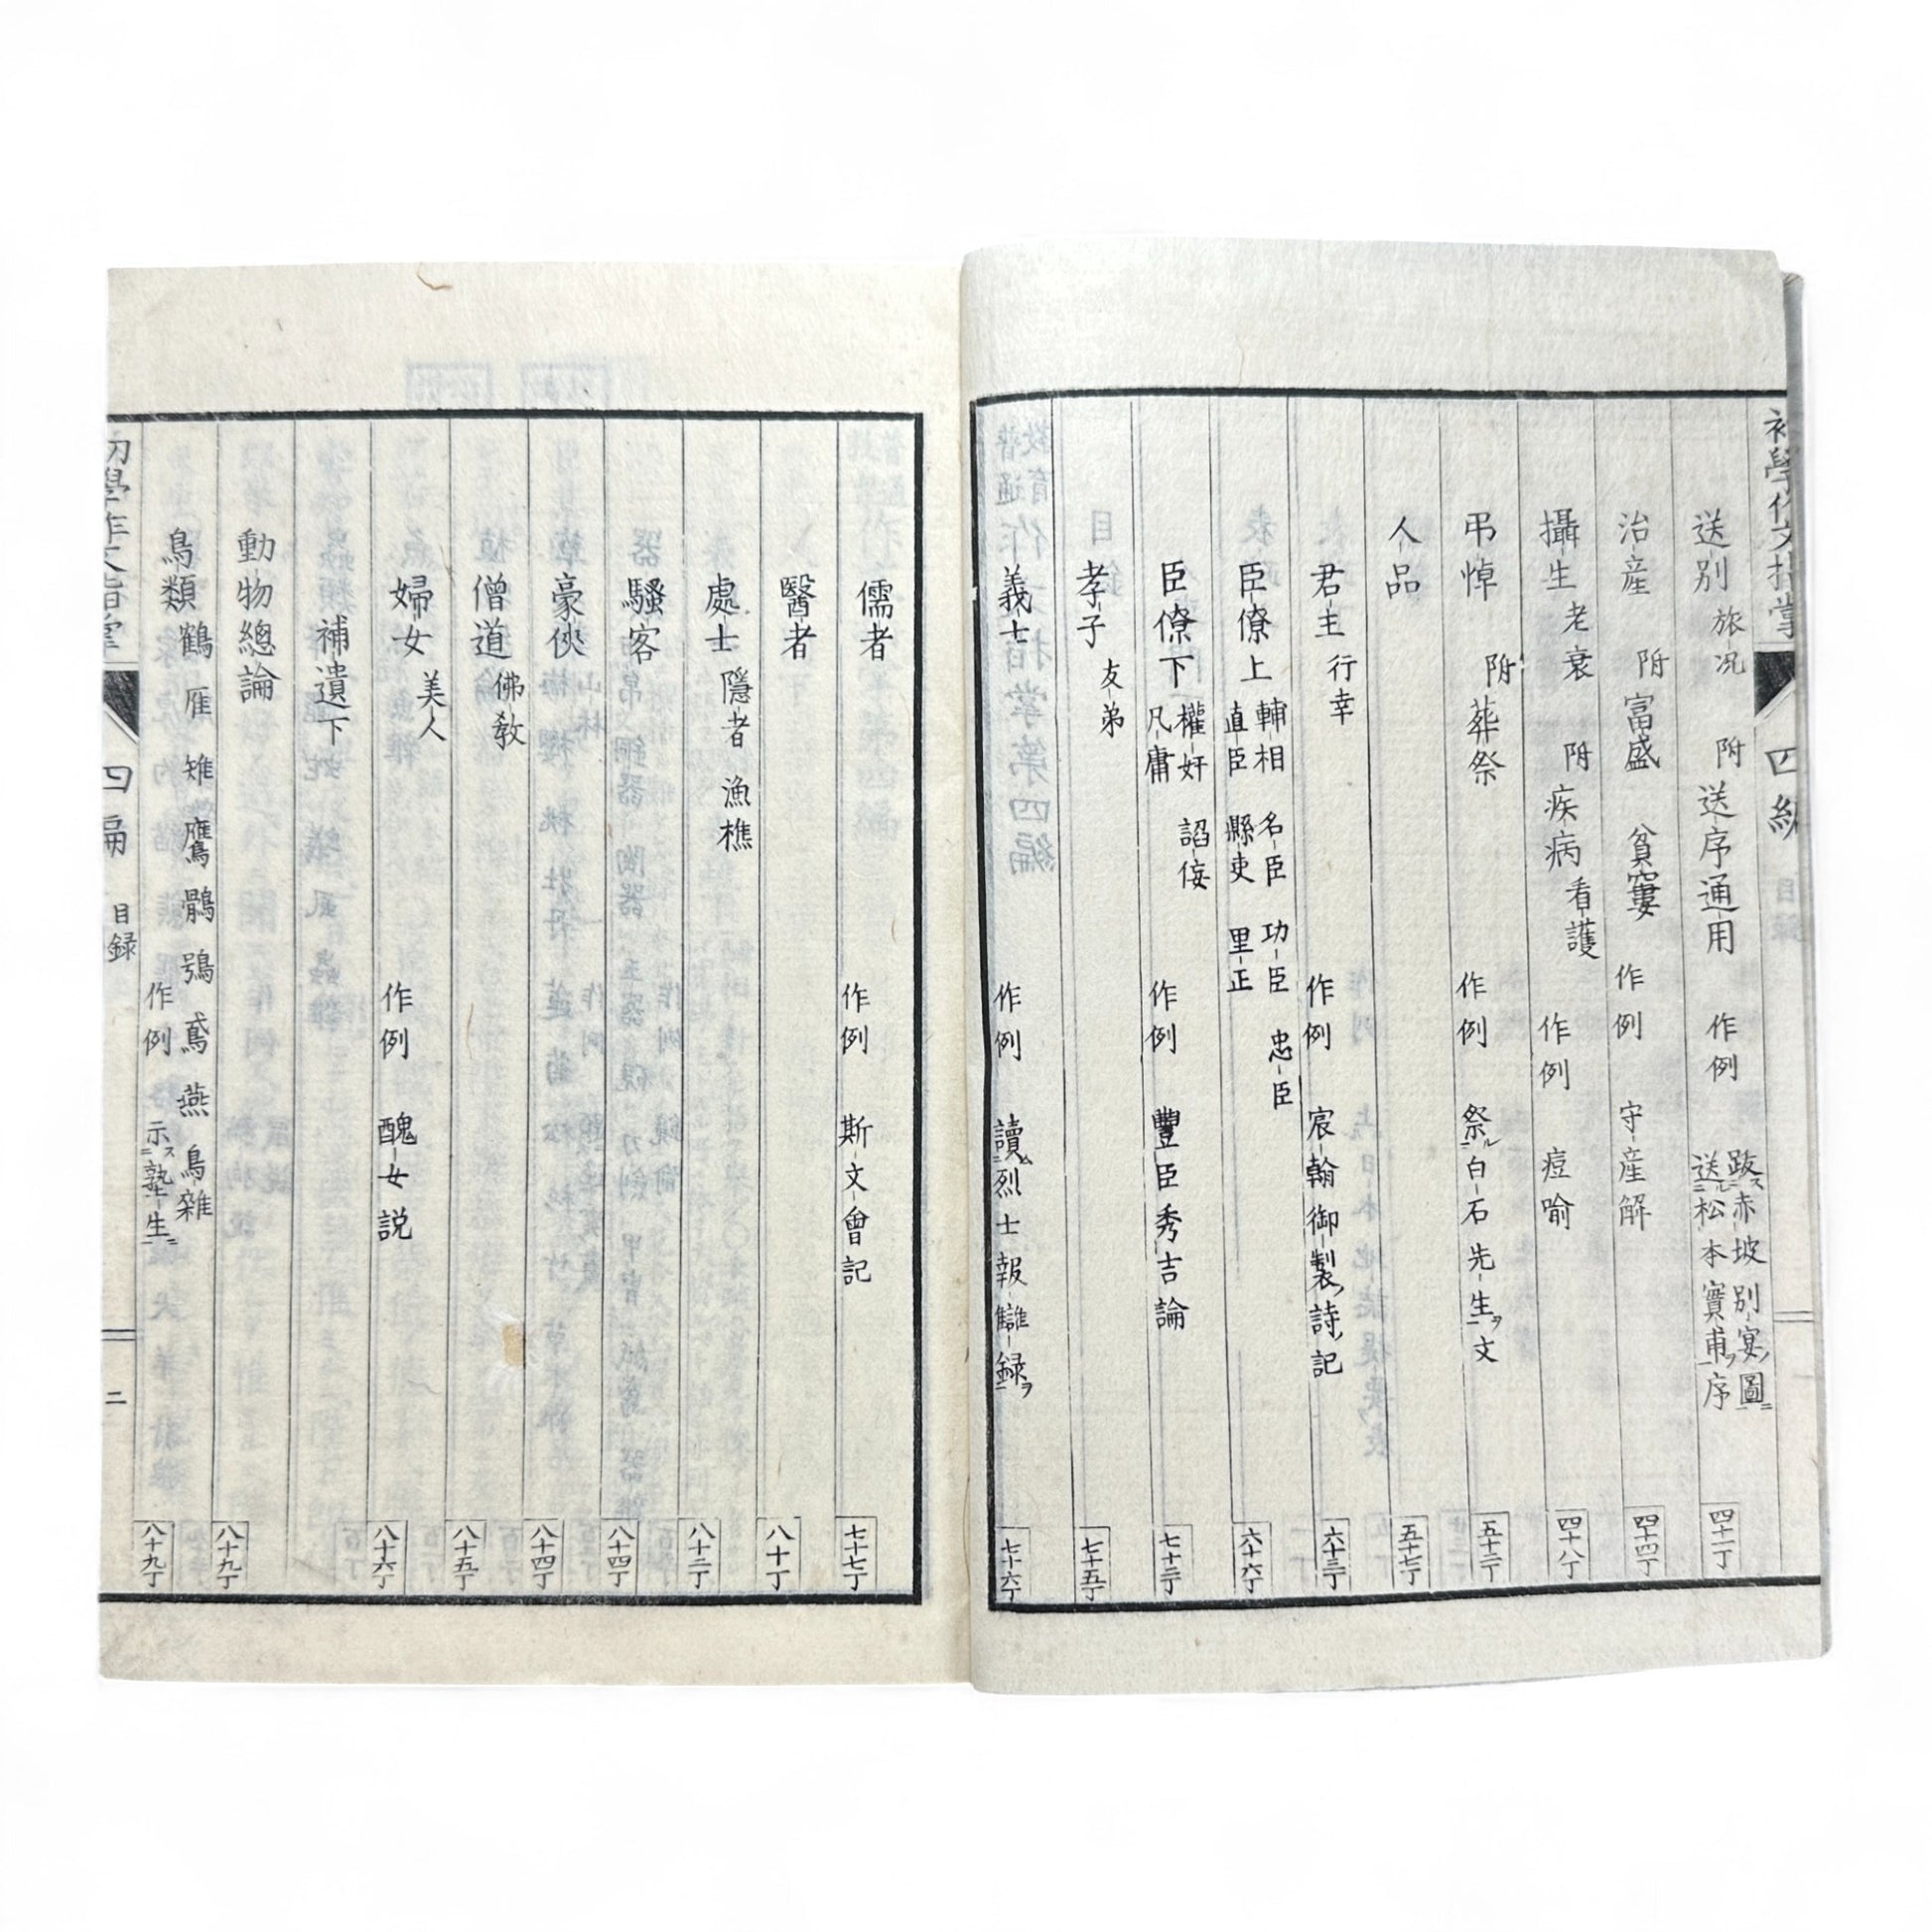 初學作文指掌 四編
送別 旅況 附 送序通用 作例 跋赤坡別宴圖 送松本實甫序 四十一丁
治産 附 富盛 貧窶 作例 守産解 四十四丁
攝生 老衰 附 疾病 看護 作例 痘喻 四十八丁
弔悼 附 葬祭 作例 祭白石先生文 五十二丁
人品 五十七丁
君主 行幸 作例 宸翰御製詩記 六十三丁
臣僚上 輔相 名臣 功臣 忠臣 直臣 縣吏 里正 六十六丁
臣僚下 權奸 諂佞 凡庸 作例 豐臣秀吉論 七十三丁
孝子 友弟 七十五丁
義士 作例 讀烈士報讎録 七十六丁
儒者 作例 斯文會記 七十七丁
醫者 八十丁
處士 隱者 漁樵 八十二丁
騷客 八十四丁
豪俠 八十四丁
僧道 佛教 八十五丁
婦女 美人 作例 醜女説 八十六丁
補遺下
動物總論 八十九丁
鳥類 鶴 雁 雉 鷹 鶻 鴞 鳶 燕 鳥雜 作例 示塾生 八十九丁
初學作文指掌 四編 目録 二